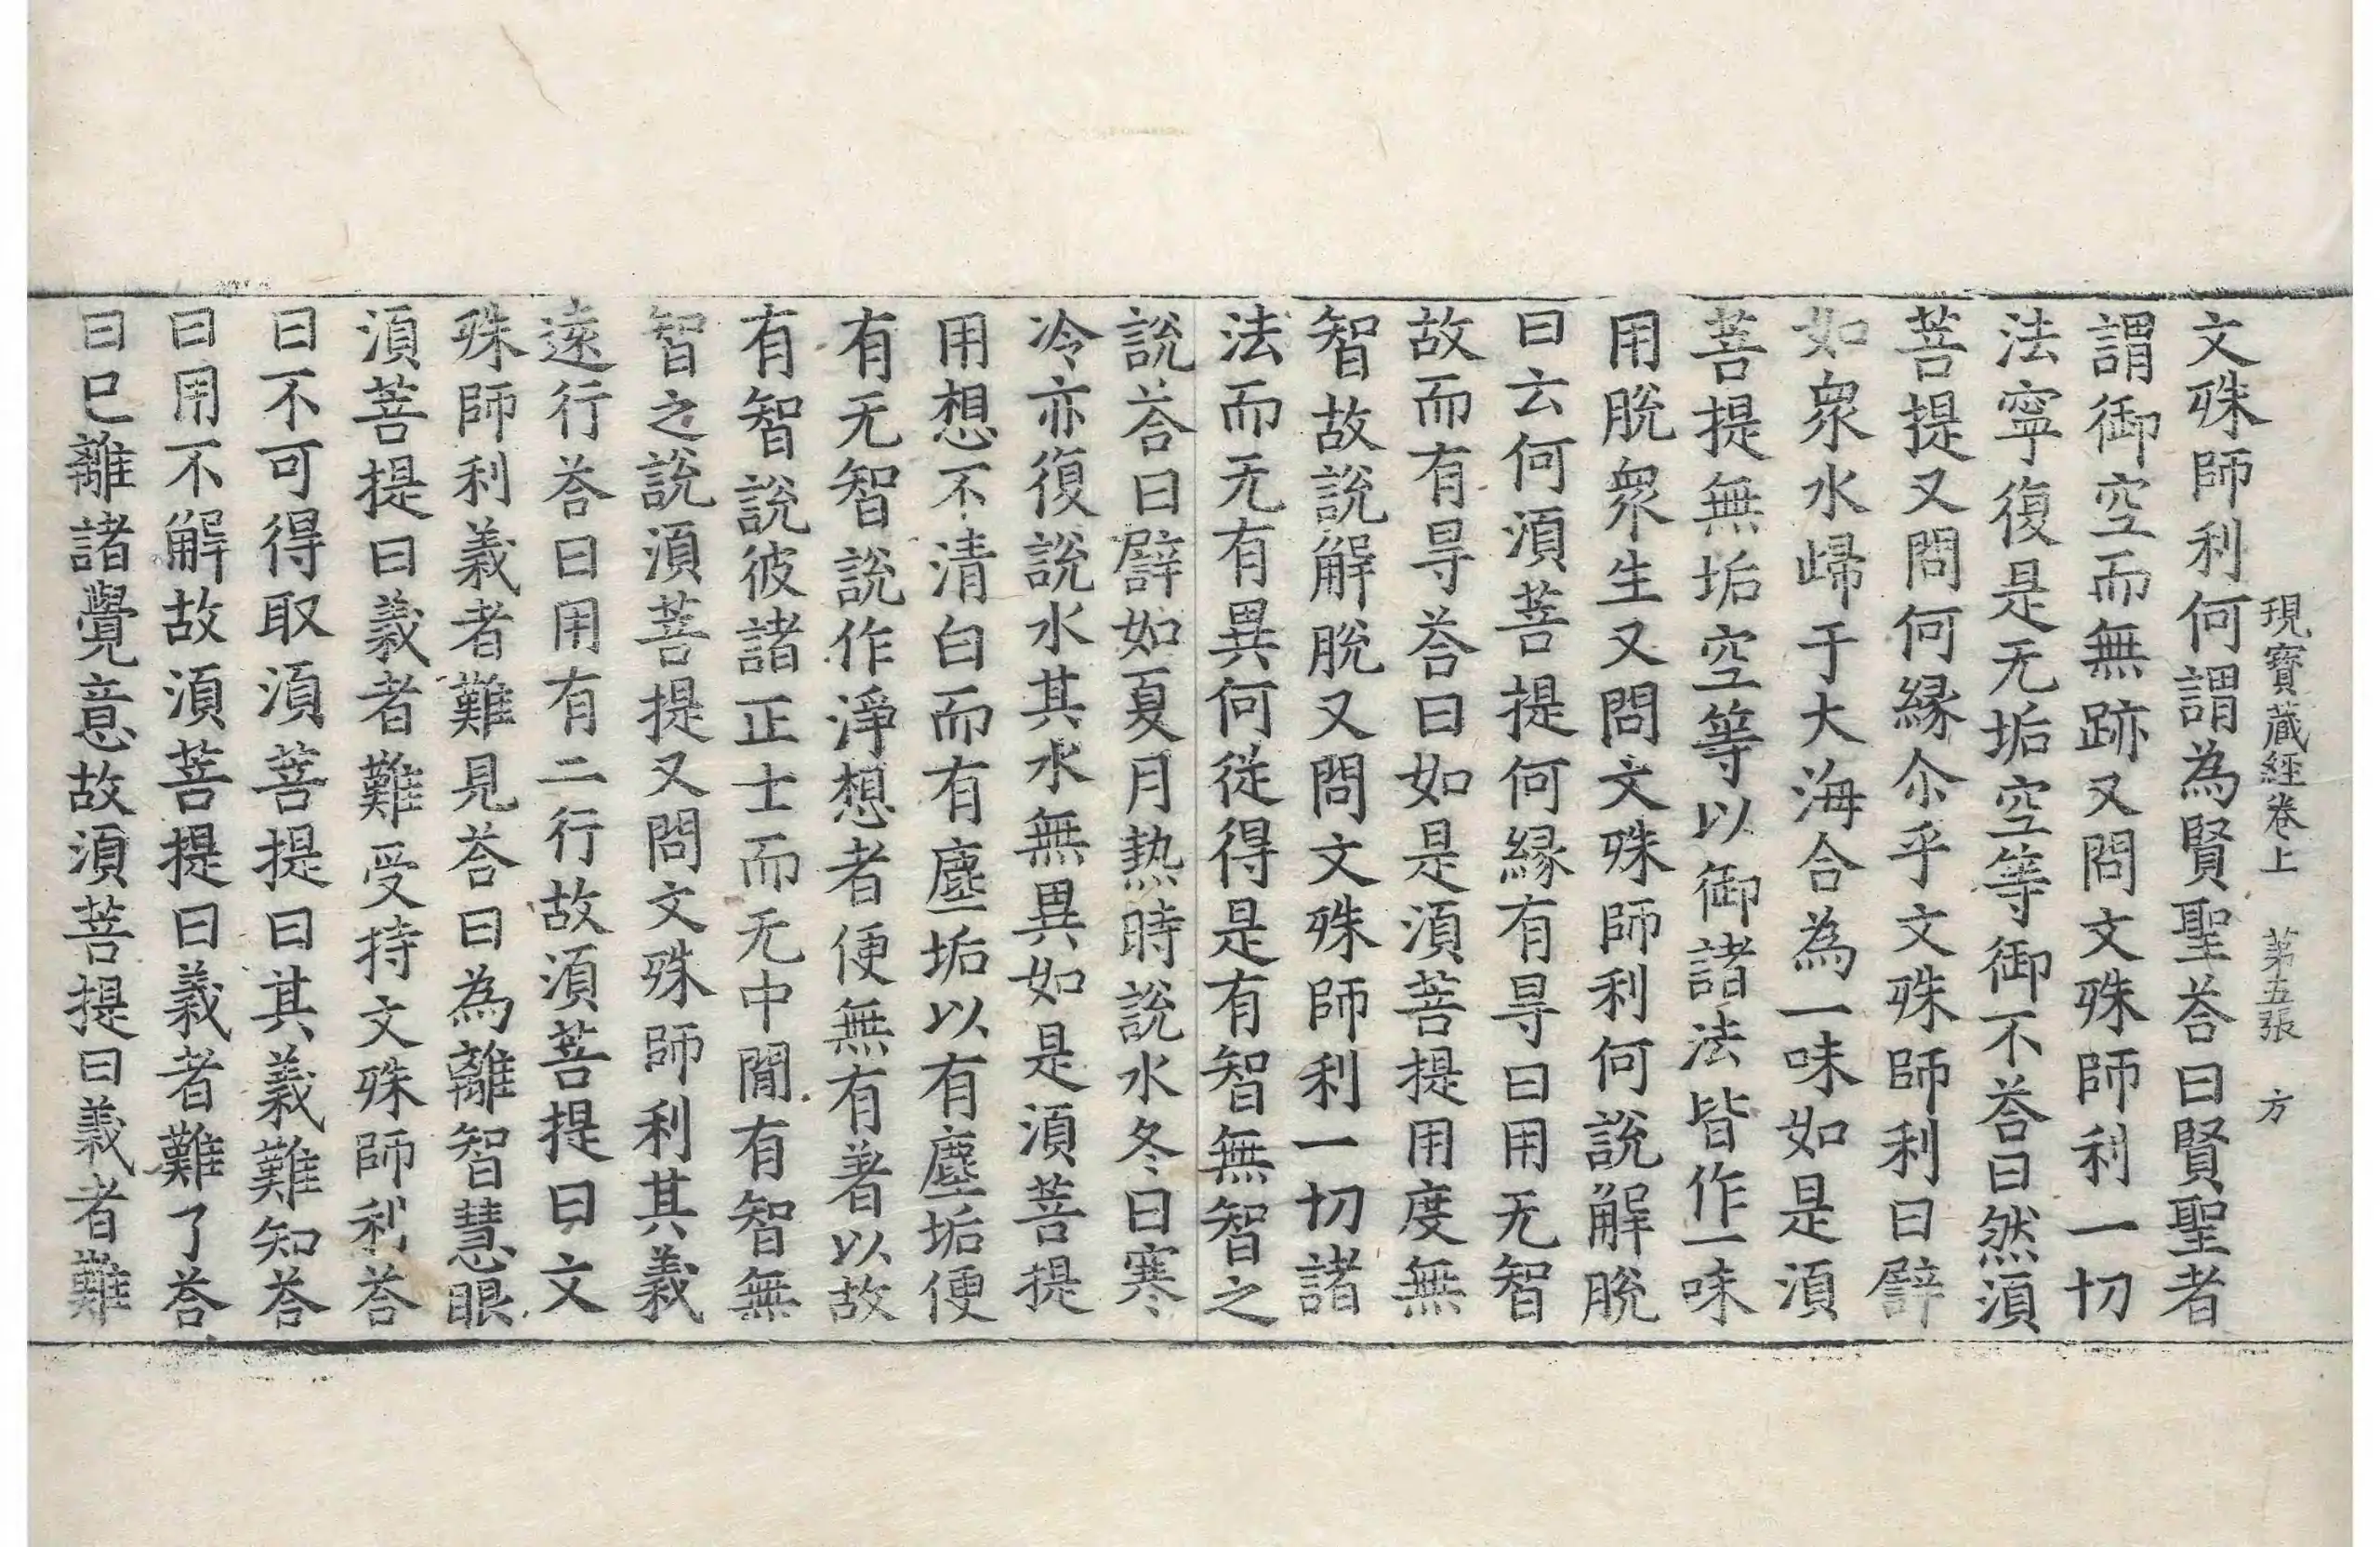 現寳藏經卷上　第五張　方
文殊師利何謂為賢聖荅曰賢聖者
謂御空而無跡又問文殊師利一切
法寧復是无垢空等御不荅曰然湏
菩提又問何縁尒乎文殊師利曰譬
如衆水歸于大海合為一味如是湏
菩提無垢空等以御諸法皆作一味
用脫衆生又問文殊師利何說解脫
曰云何湏菩提何縁有㝵曰用无智
故而有㝵荅曰如是湏菩提用度無
智故說解脫又問文殊師利一切諸
法而无有異何從得是有智無智之
說荅曰譬如夏月热時說水冬日寒
冷亦復說水其水無異如是湏菩提
用想不清白而有塵垢以有塵垢便
有无智說作淨想者便無有著以故
有智說彼諸正士而无中閒有智無
智之說湏菩提又問文殊師利其義
遠行荅曰用有二行故湏菩提曰文
殊師利義者難見荅曰為離智慧眼
湏菩提曰義者難受持文殊師利荅
曰不可得取湏菩提曰其義難知荅
曰用不解故湏菩提曰義者難了荅
曰已離諸覺意故湏菩提曰義者難